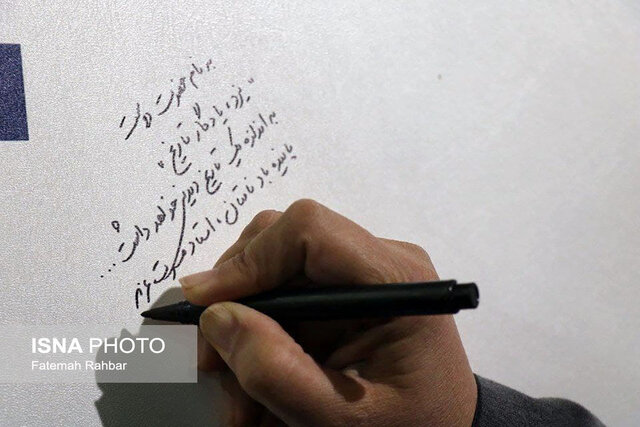 به نام حضرت دوست
"یزد، یادگار تاریخ"
به اندازه یک تاریخ دیدنی خواهد داشت...
پاینده باد نامتان، استاد مسرت عزیز
ISNA PHOTO
Fatemah Rahbar